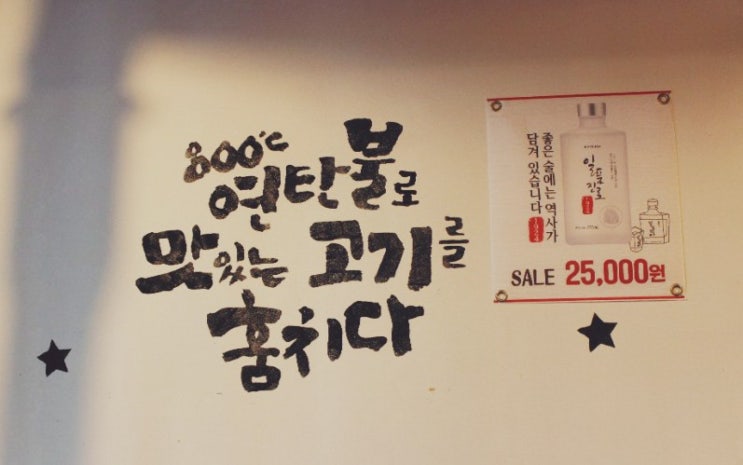 800℃
연탄불로
맛있는 고기를
훔치다
좋은 술에는 역사가
담겨 있습니다
일품진로
SALE 25,000원